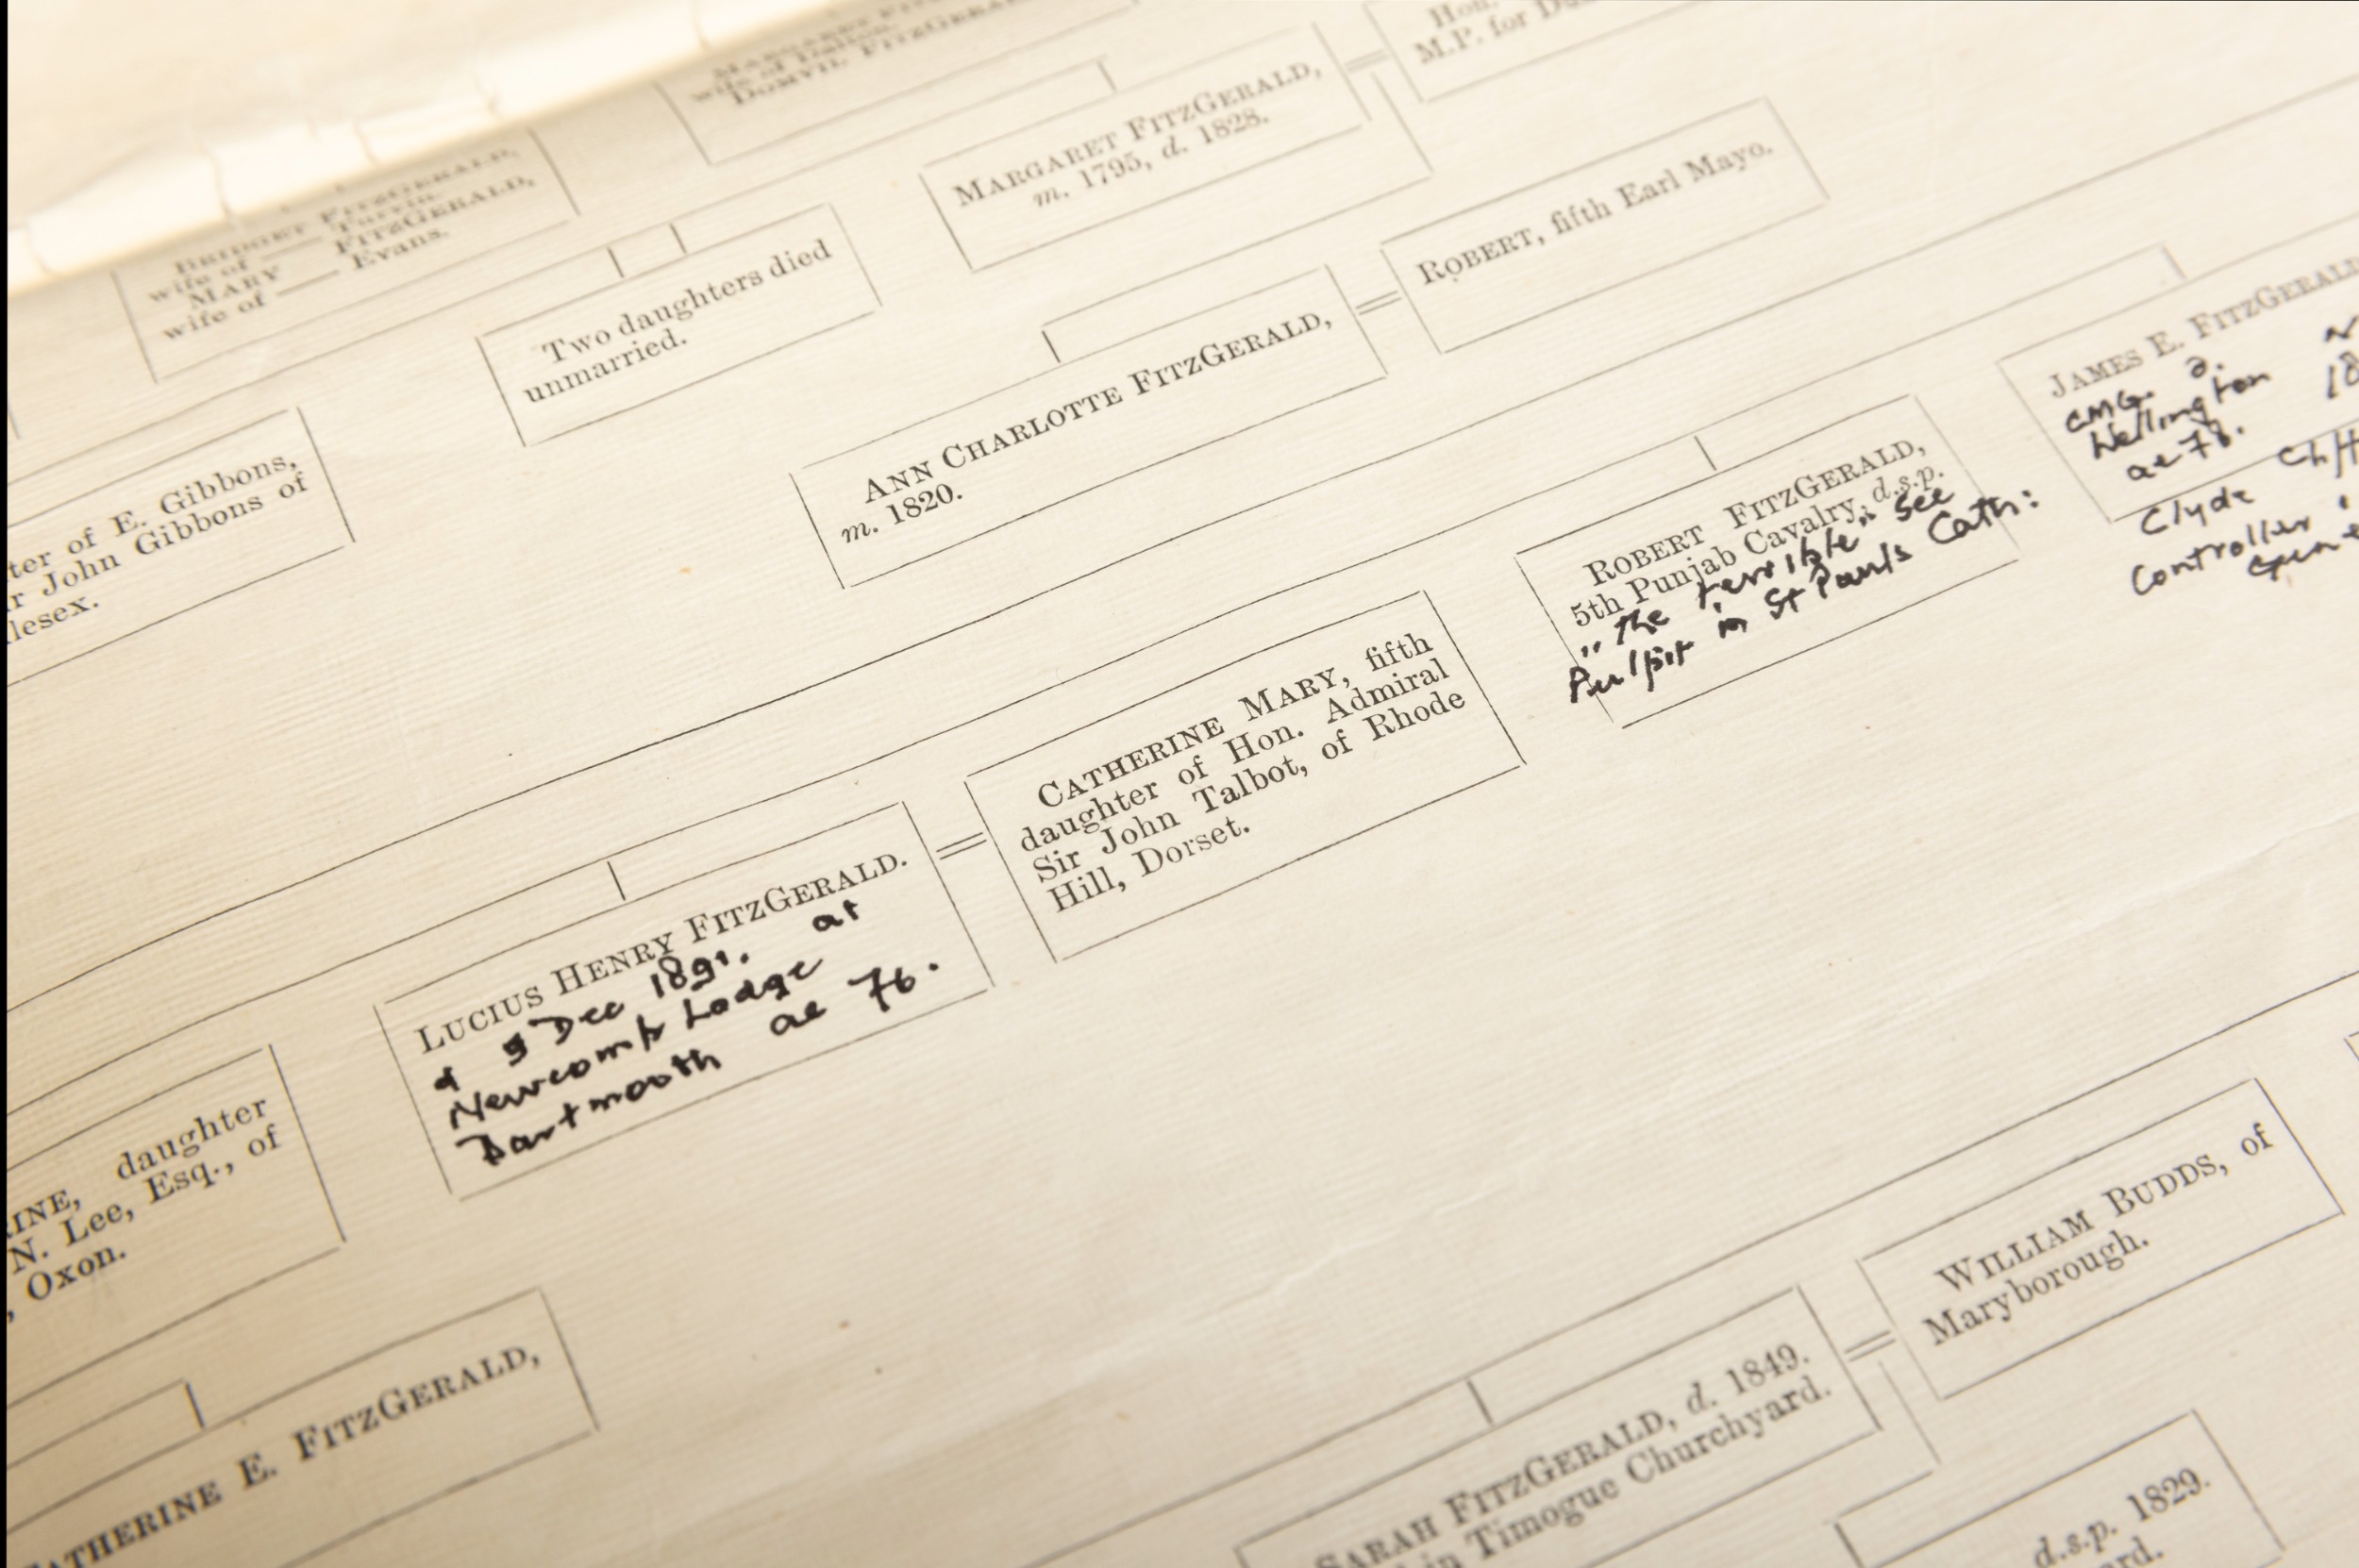 Hon.
M.P. for
MARGARET FITZGERALD,
m. 1795, d. 1828.
wife of
DOMVIL FITZGERALD
BRIDGET FITZGERALD,
wife of
MARY FITZGERALD,
wife of Evans.
Two daughters died
unmarried.
ROBERT, fifth Earl Mayo.
ANN CHARLOTTE FITZGERALD,
m. 1820.
ter of E. Gibbons,
r John Gibbons of
lesex.
JAMES E. FITZGERALD
CMG. d.
Wellington 18
ae 78.
Clyde Cliff
Controller
ROBERT FITZGERALD,
5th Punjab Cavalry, d.s.p.
"The terrible" see
Pulpit in St Pauls Cath:
CATHERINE MARY, fifth
daughter of Hon. Admiral
Sir John Talbot, of Rhode
Hill, Dorset.
LUCIUS HENRY FITZGERALD.
d 9 Dec 1891. at
Newcomb Lodge
Dartmouth ae 76.
RINE, daughter
N. Lee, Esq., of
, Oxon.
ATHERINE E. FITZGERALD,
WILLIAM BUDDS, of
Maryborough.
SARAH FITZGERALD, d. 1849.
in Timogue Churchyard.
d.s.p. 1829.
rd.